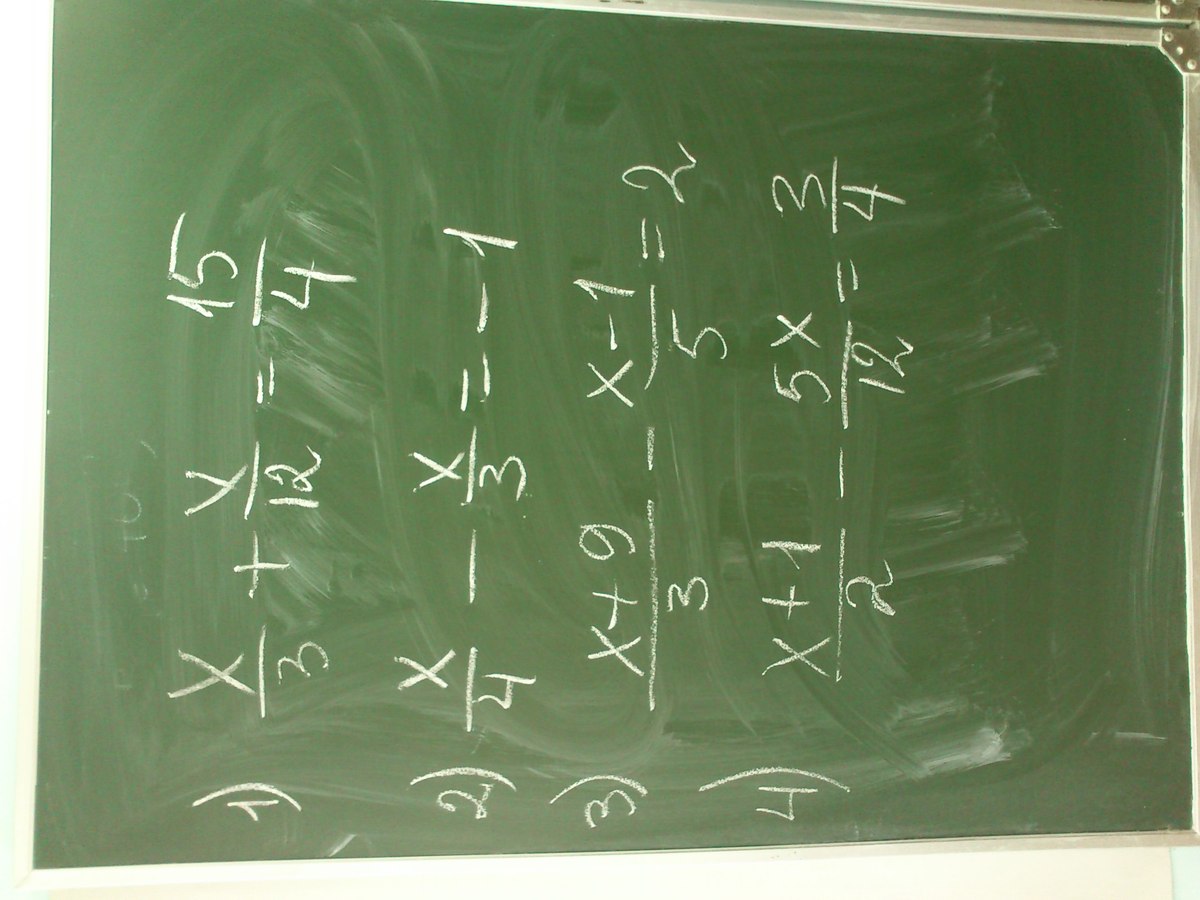 1) x/3 + x/12 = 15/4
2) x/4 - x/3 = -1
3) (x+9)/3 - (x-1)/5 = 2
4) (x+1)/2 - 5x/12 = 3/4